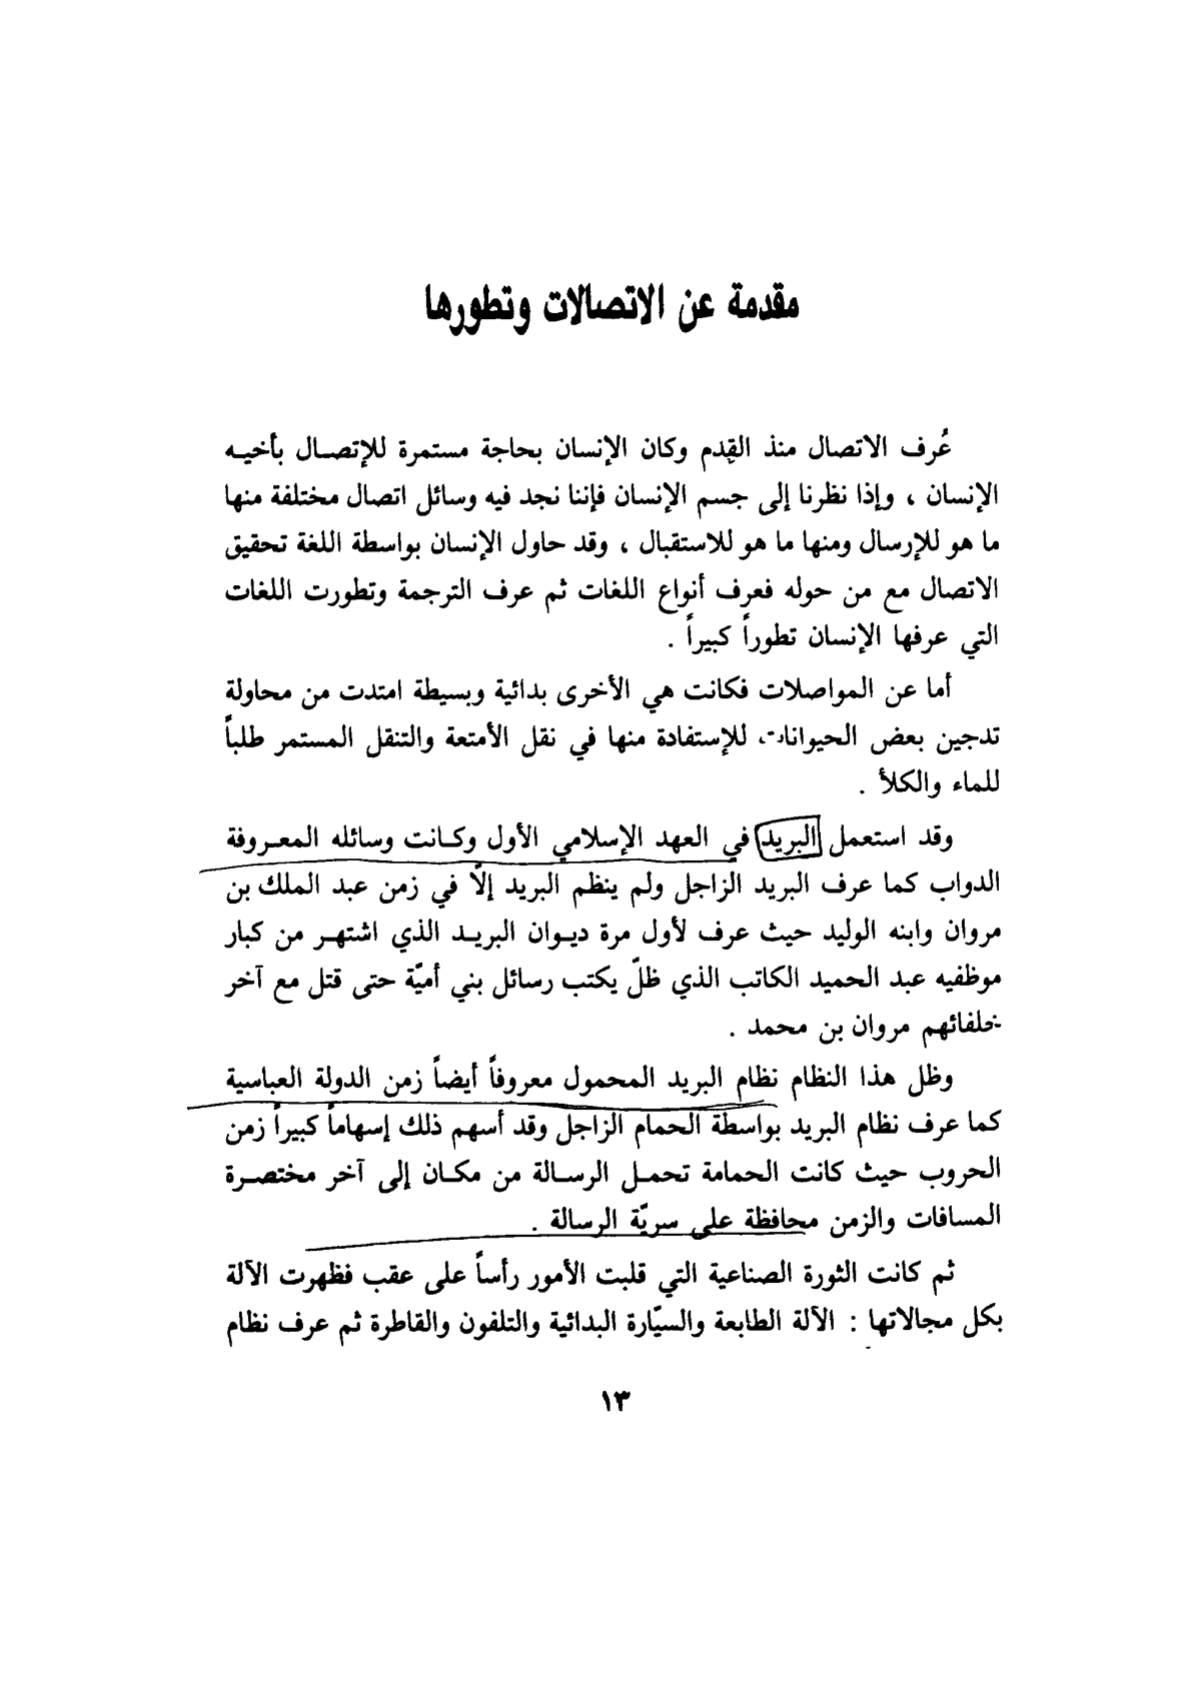 مقدمة عن الاتصالات وتطورها
عُرف الاتصال منذ القِدم وكان الإنسان بحاجة مستمرة للإتصال بأخيه
الإنسان ، وإذا نظرنا إلى جسم الإنسان فإننا نجد فيه وسائل اتصال مختلفة منها
ما هو للإرسال ومنها ما هو للاستقبال ، وقد حاول الإنسان بواسطة اللغة تحقيق
الاتصال مع من حوله فعرف أنواع اللغات ثم عرف الترجمة وتطورت اللغات
التي عرفها الإنسان تطوراً كبيراً .
أما عن المواصلات فكانت هي الأخرى بدائية وبسيطة امتدت من محاولة
تدجين بعض الحيوانات، للإستفادة منها في نقل الأمتعة والتنقل المستمر طلباً
للماء والكلأ .
وقد استعمل البريد في العهد الإسلامي الأول وكانت وسائله المعروفة
الدواب كما عرف البريد الزاجل ولم ينظم البريد إلّا في زمن عبد الملك بن
مروان وابنه الوليد حيث عرف لأول مرة ديوان البريد الذي اشتهر من كبار
موظفيه عبد الحميد الكاتب الذي ظلّ يكتب رسائل بني أميّة حتى قتل مع آخر
خلفائهم مروان بن محمد .
وظل هذا النظام نظام البريد المحمول معروفاً أيضاً زمن الدولة العباسية
كما عرف نظام البريد بواسطة الحمام الزاجل وقد أسهم ذلك إسهاماً كبيراً زمن
الحروب حيث كانت الحمامة تحمل الرسالة من مكان إلى آخر مختصرة
المسافات والزمن محافظة على سريّة الرسالة .
ثم كانت الثورة الصناعية التي قلبت الأمور رأساً على عقب فظهرت الآلة
بكل مجالاتها : الآلة الطابعة والسيّارة البدائية والتلفون والقاطرة ثم عرف نظام
١٣